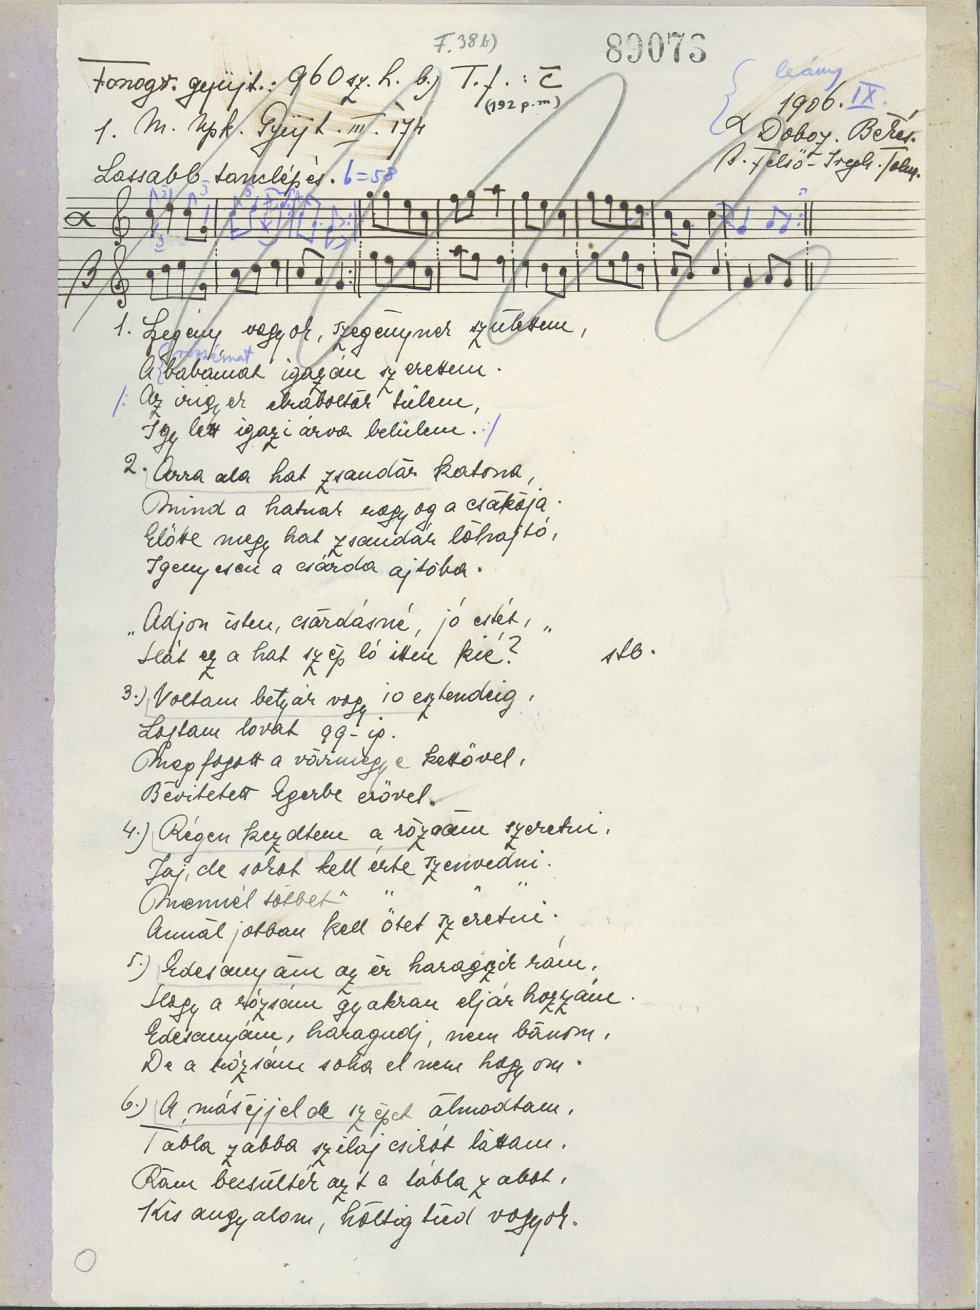 F. 38 b)
89073
Fonogr. gyűjt.: 960 sz. h. b.) T. f. : c̄
(192 p. m)
leány
1906. IX.
1. M. Npk. Gyűjt. III. 174
α Doboz. Békés.
β. Felső-Iregh. Tolna.
Lassabb tánclépés. 58
α
β
1. Legény vagyok, szegénynek születtem,
rózsámat
A babámat igazán szerettem.
/: Az irigyek elrabolták tülem,
Igy lett igazi árva belülem. :/
2. Arra ala hat zsandár katona,
Mind a hatnak ragyog a csákója.
Előtte megy hat zsandár lóhajtó,
Igenyesen a csárda ajtóba.
„Adjon isten, csárdásné, jó estét, „
Hát ez a hat szép ló itten kié? stb.
3.) Voltam betyár vagy 10 esztendeig,
Loptam lovat 99-ig.
Megfogott a vármegye kettővel,
Bévitetett Egerbe erővel.
4.) Régen kezdtem a rózsám szeretni,
Jaj, de sokat kell érte szenvedni.
Mennél többet " " "
Annál jobban kell őtet szeretni.
5.) Edesanyám az ér haragszik rám,
Hogy a rózsám gyakran eljár hozzám.
Edesanyám, haragudj, nem bánom,
De a rózsám soha el nem hagyom.
6.) A máséjjel de szépet álmodtam,
Tábla zabba szilaj csikót láttam.
Rám becsülték azt a tábla zabot,
Kis angyalom, holtig tied vagyok.